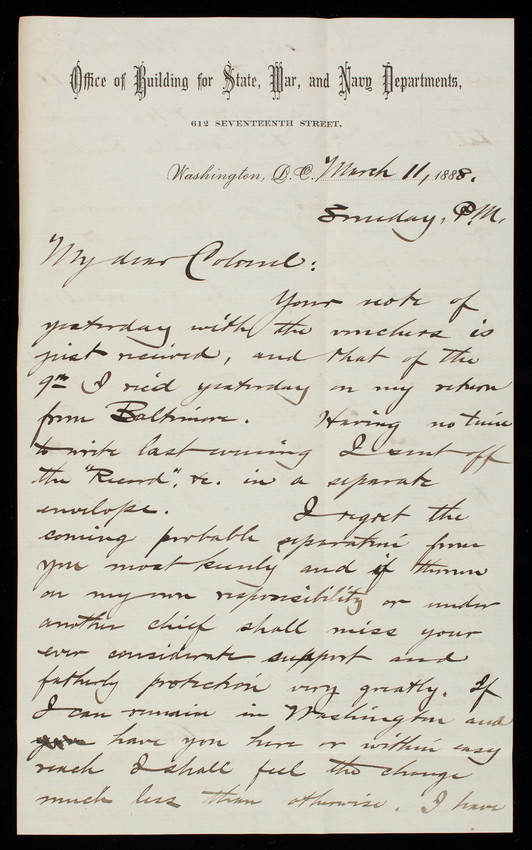 Office of Building for State, War, and Navy Departments,
612 SEVENTEENTH STREET,
Washington, D.C. March 11, 1888.
Sunday, P.M.
My dear Colonel:
Your note of
yesterday with the vouchers is
just received, and that of the
9th I rec'd yesterday on my return
from Baltimore. Having no time
to write last evening I sent off
the "Record", &c. in a separate
envelope. I regret the
coming probable separation from
you most keenly and if thrown
on my own responsibility or under
another chief shall miss your
ever considerate support and
fatherly protection very greatly. If
I can remain in Washington and
have you here or within easy
reach I shall feel the change
much less than otherwise. I have